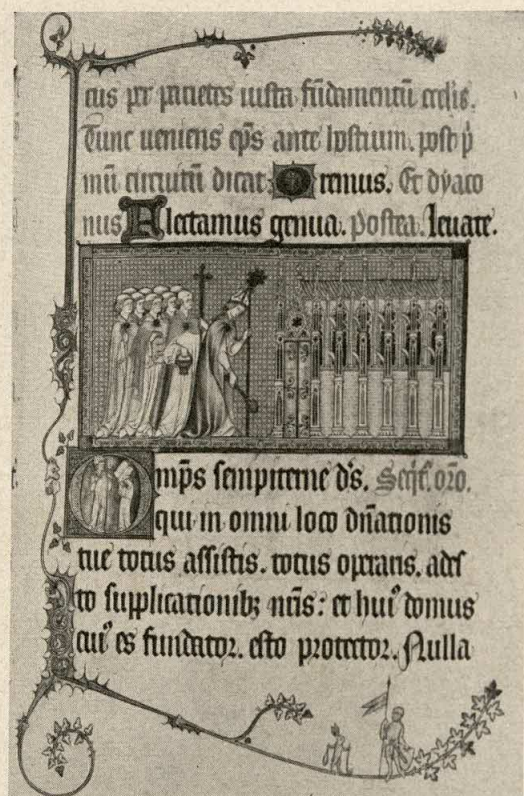 cus per parietes iuxta fūdamentū ecclīe.
Tunc ueniens ep̄s ante hostium. post p̄
mū circuitū dicat: Oremus. Et dyaco
nus Flectamus genua. postea. leuate.
Omp̄s sempiterne d̄s. oīo.
qui in omni loco dn̄ationis
tue totus assistis. totus operaris. ades
to supplicationibꝫ nr̄is: et huiꝰ domus
cuiꝰ es fundator. esto protector. Nulla